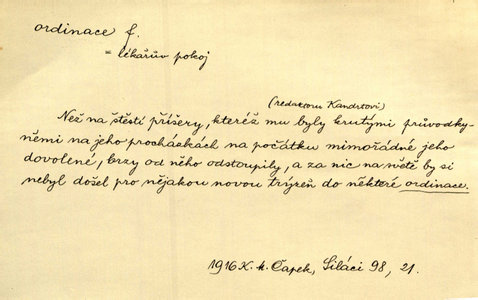 ordinace f.
= lékařův pokoj
(redaktoru Kandrtovi)
Než na štěstí příšery, kteréž mu byly krutými průvodky-
němi na jeho procházkách na počátku mimořádné jeho
dovolené, brzy od něho odstoupily, a za nic na světě by si
nebyl došel pro nějakou novou trýzeň do některé ordinace.
1916 K. M. Čapek, Siláci 98, 21.